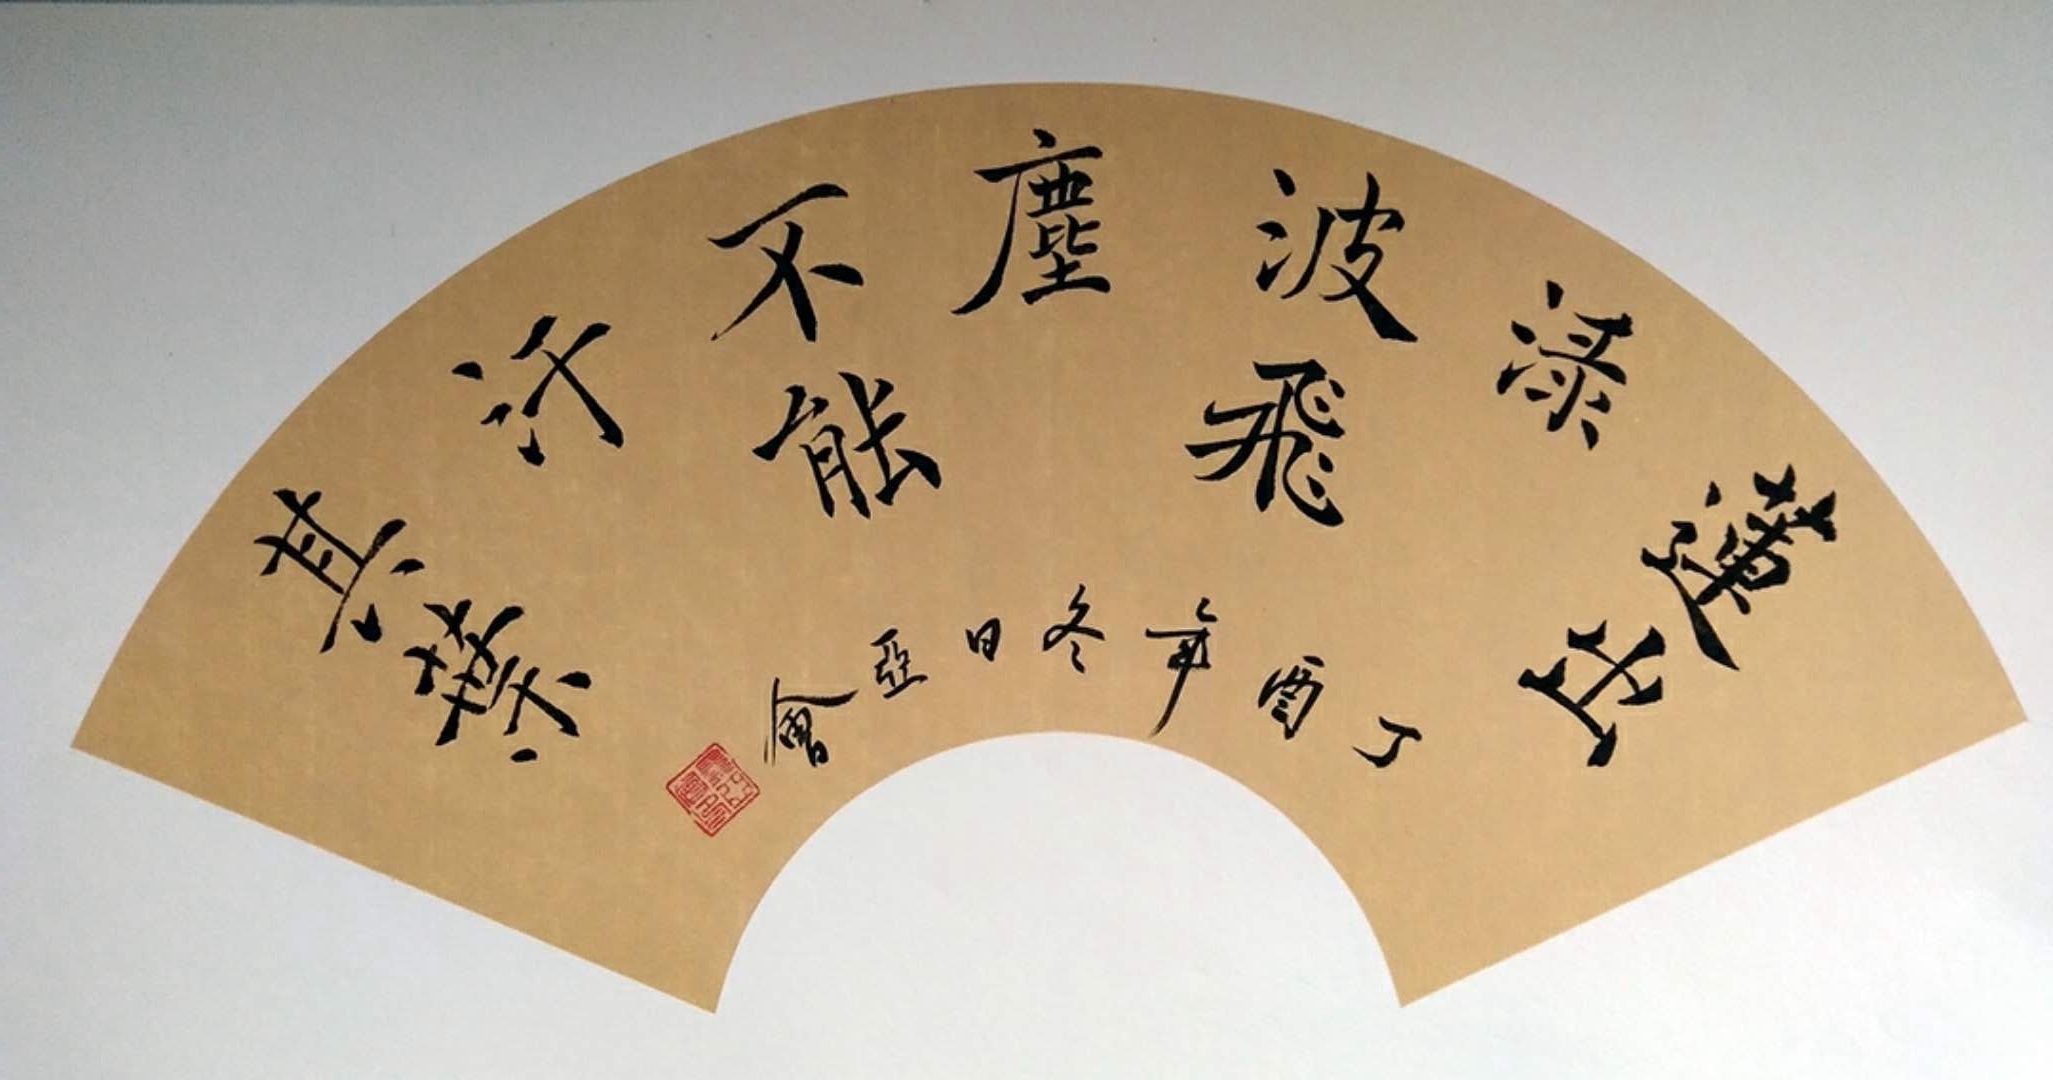 蓮出
渌
波飛
塵
不能
汙
其葉
丁酉年冬日亞會